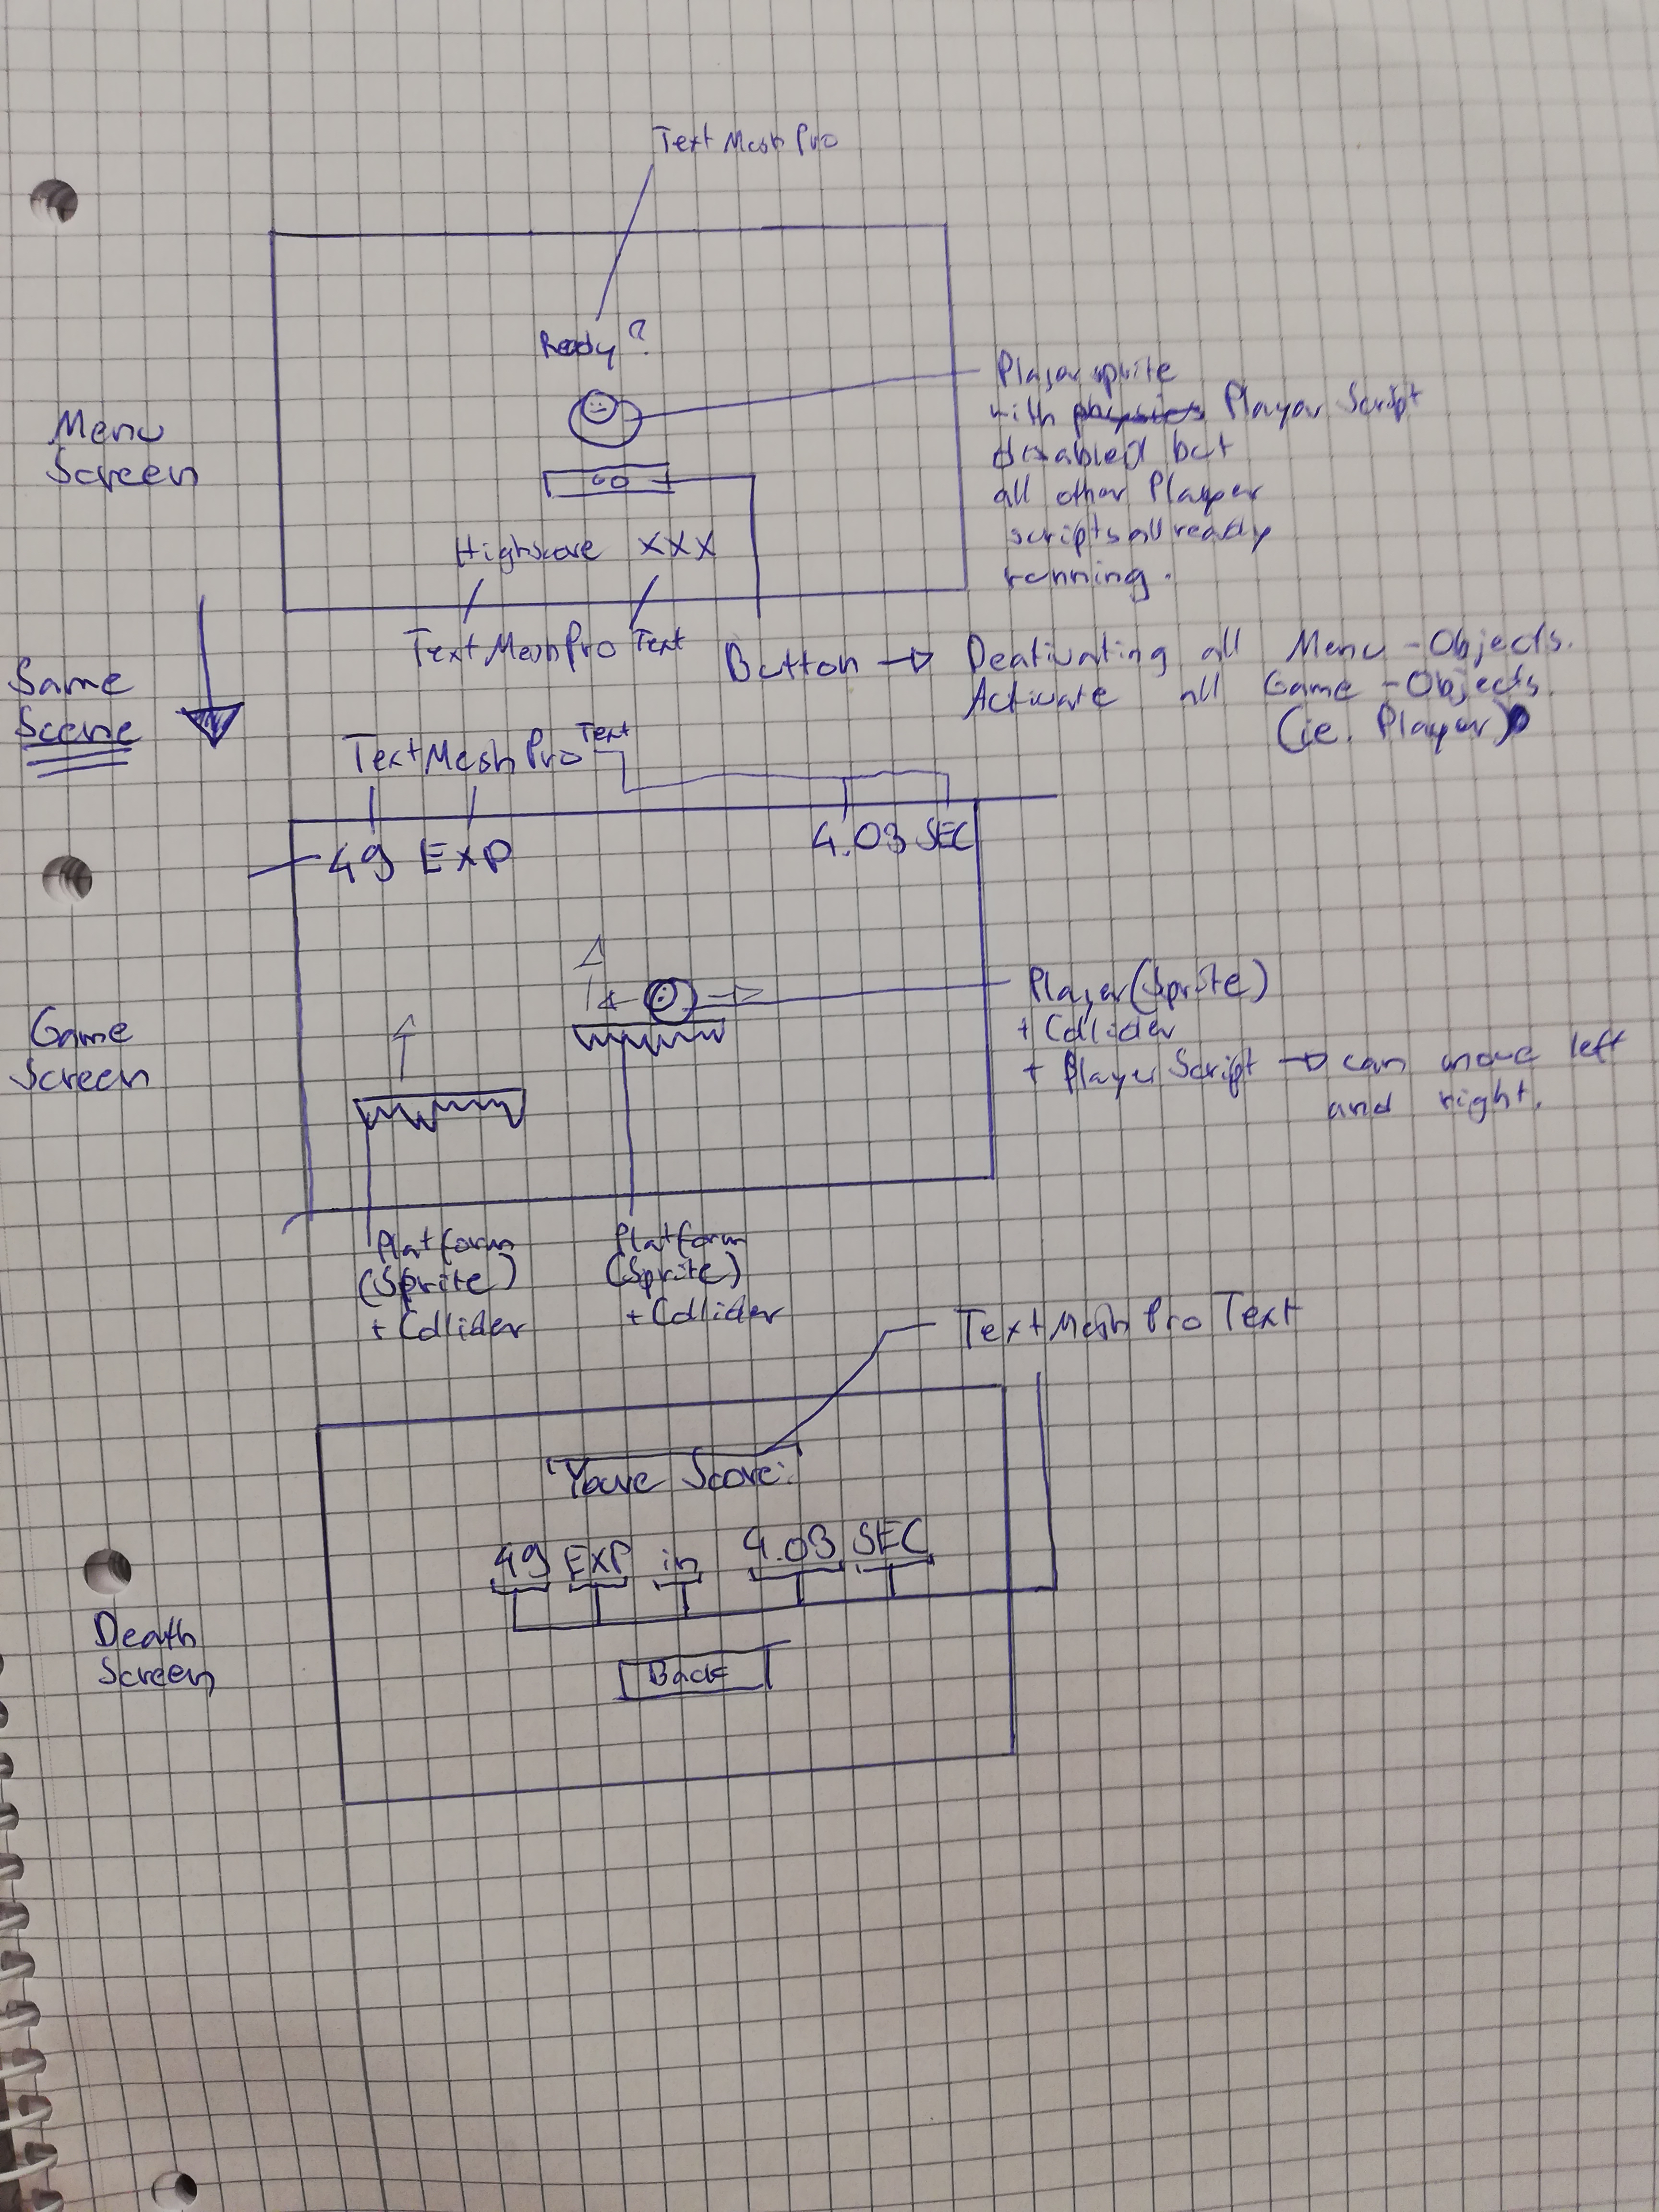 TextMeshPro
Ready?
Menu
Screen
GO
Highscore XXX
Player sprite
with physics Player Script
disabled but
all other Player
scripts allready
running.
TextMeshPro Text
Button → Deativating all Menu-Objects.
Activate all Game-Objects.
(ie. Player)
Same
Scene
TextMeshPro Text
49 EXP
4.03 SEC
Game
Screen
Player (Sprite)
+ Collider
+ Player Script → can move left
and right.
Platform
(Sprite)
+ Collider
Platform
(Sprite)
+ Collider
TextMeshPro Text
Youre Score:
49 EXP in 4.03 SEC
Back
Death
Screen